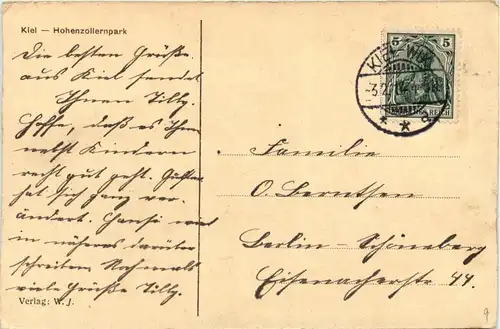 Kiel — Hohenzollernpark
Die besten Grüße
aus Kiel sendet
Ihnen Tilly.
Hoffe, daß es Ihnen
nebst Kindern
recht gut geht. Gustav
hat sich ganz ver-
ändert. Hansi wird
in näheres darüber
schreiben. Nochmals
viele Grüße Tilly.
Verlag: W. J.
5 5
KIEL-WIK
-3.2.
REICH
* * a
Familie
O. Berntsen
Berlin-Schöneberg
Eisenacherstr 44.
9